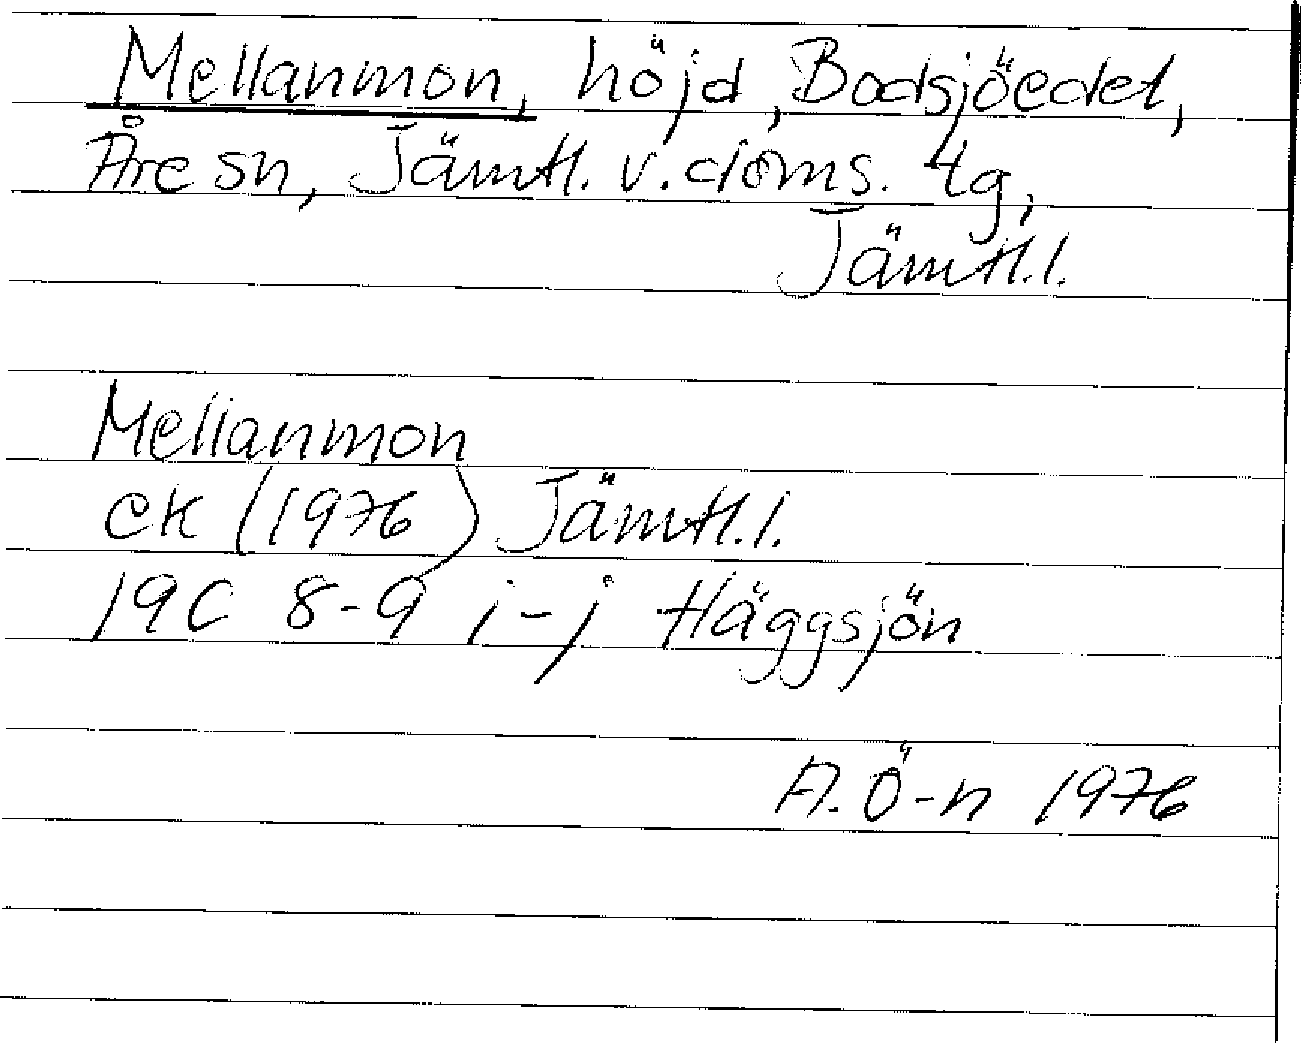 Mellanmon, höjd, Bodsjöedet,
Åre sn, Jämtl. v. doms. tg,
Jämtl.l.
Mellanmon
ek (1976) Jämtl.l.
19C 8-9 i-j Häggsjön
A.Ö-n 1976